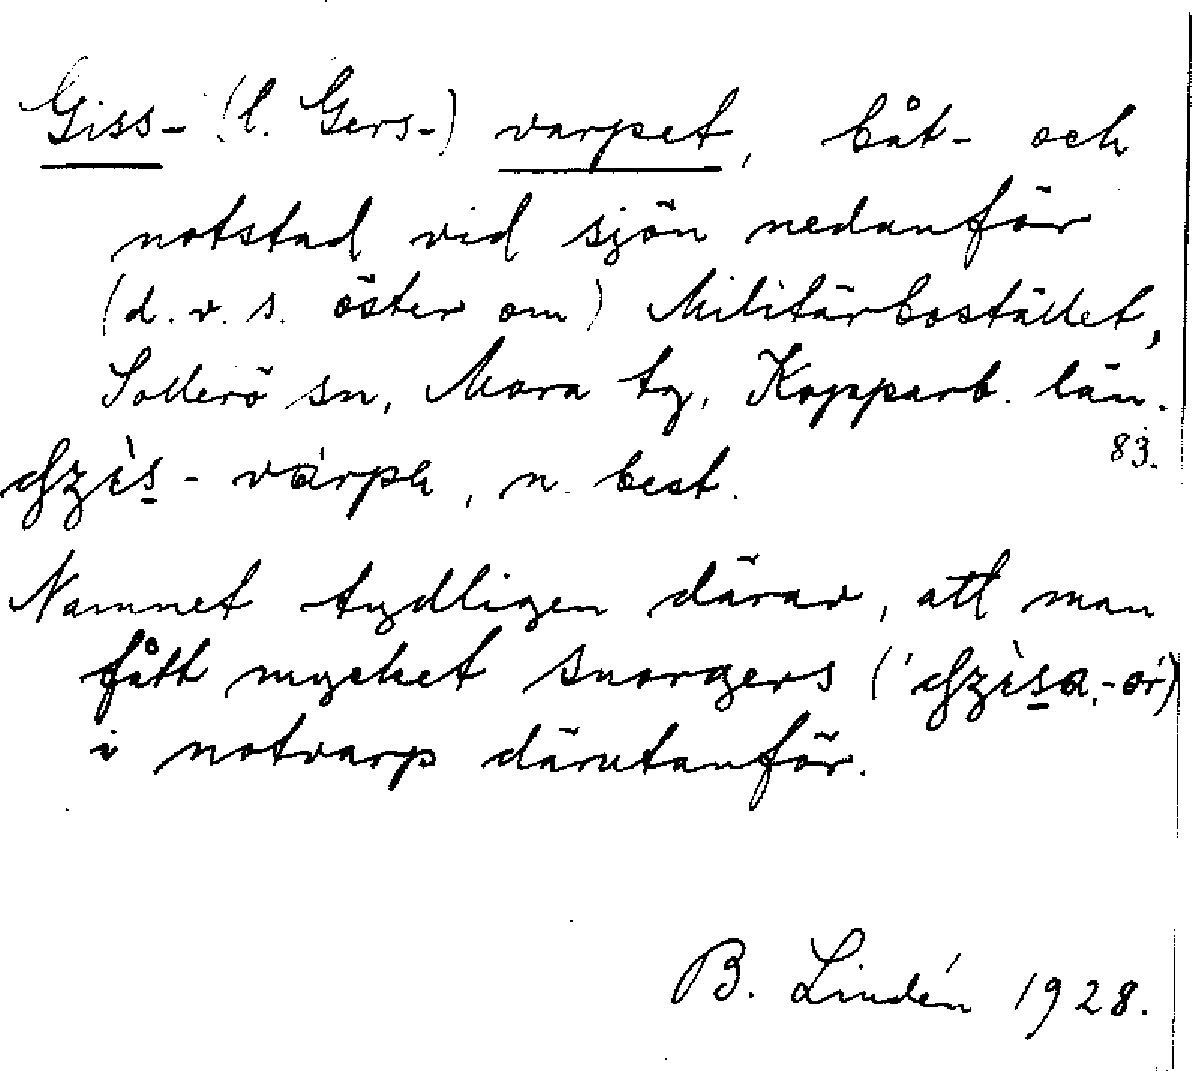 Giss- (l. Gers-) varpet, båt- och
notstad vid sjön nedanför
(d.v.s. öster om) Militärbostället,
Sollerö sn, Mora tg, Kopparb. län.
83.
-värpȧ, n. best.
Namnet tydligen därav, att man
fått mycket snorgers (
i notvarp därutanför.
B. Lindén 1928.